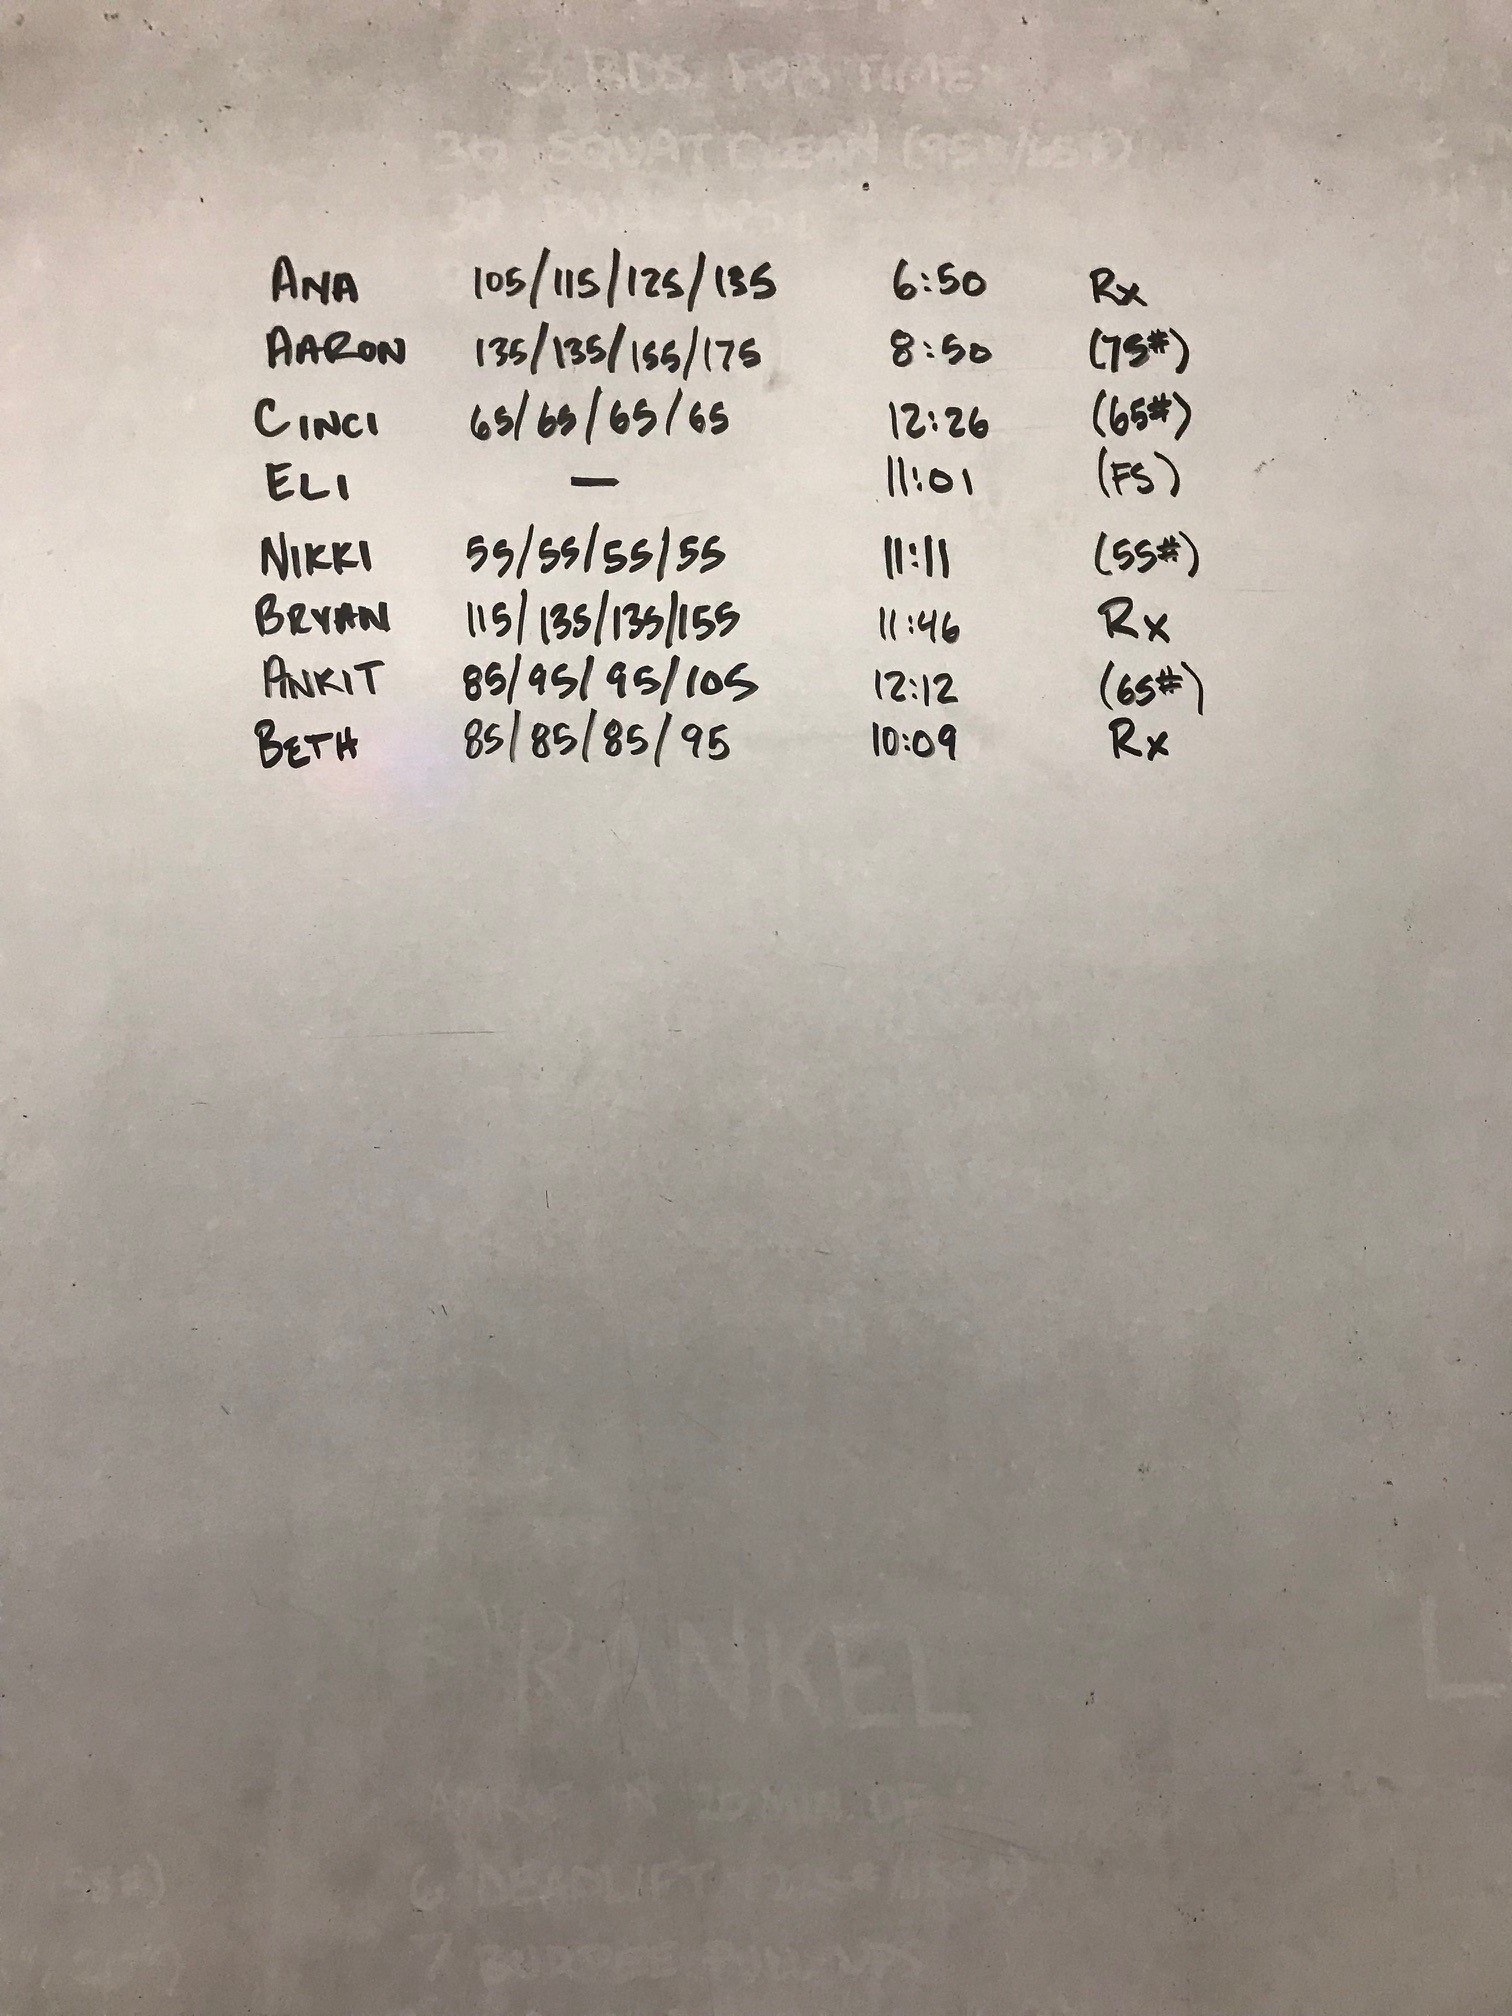 3 RDS. FOR TIME
30 SQUAT CLEAN (95#/65#)
ANA 105/115/125/135 6:50 Rx
AARON 135/135/155/175 8:50 (75#)
CINCI 65/65/65/65 12:26 (65#)
ELI — 11:01 (FS)
NIKKI 55/55/55/55 11:11 (55#)
BRYAN 115/135/135/155 11:46 Rx
ANKIT 85/95/95/105 12:12 (65#)
BETH 85/85/85/95 10:09 Rx
"RANKEL
20 MIN. OF
6 DEADLIFT
7 BURPEE PULL-UPS